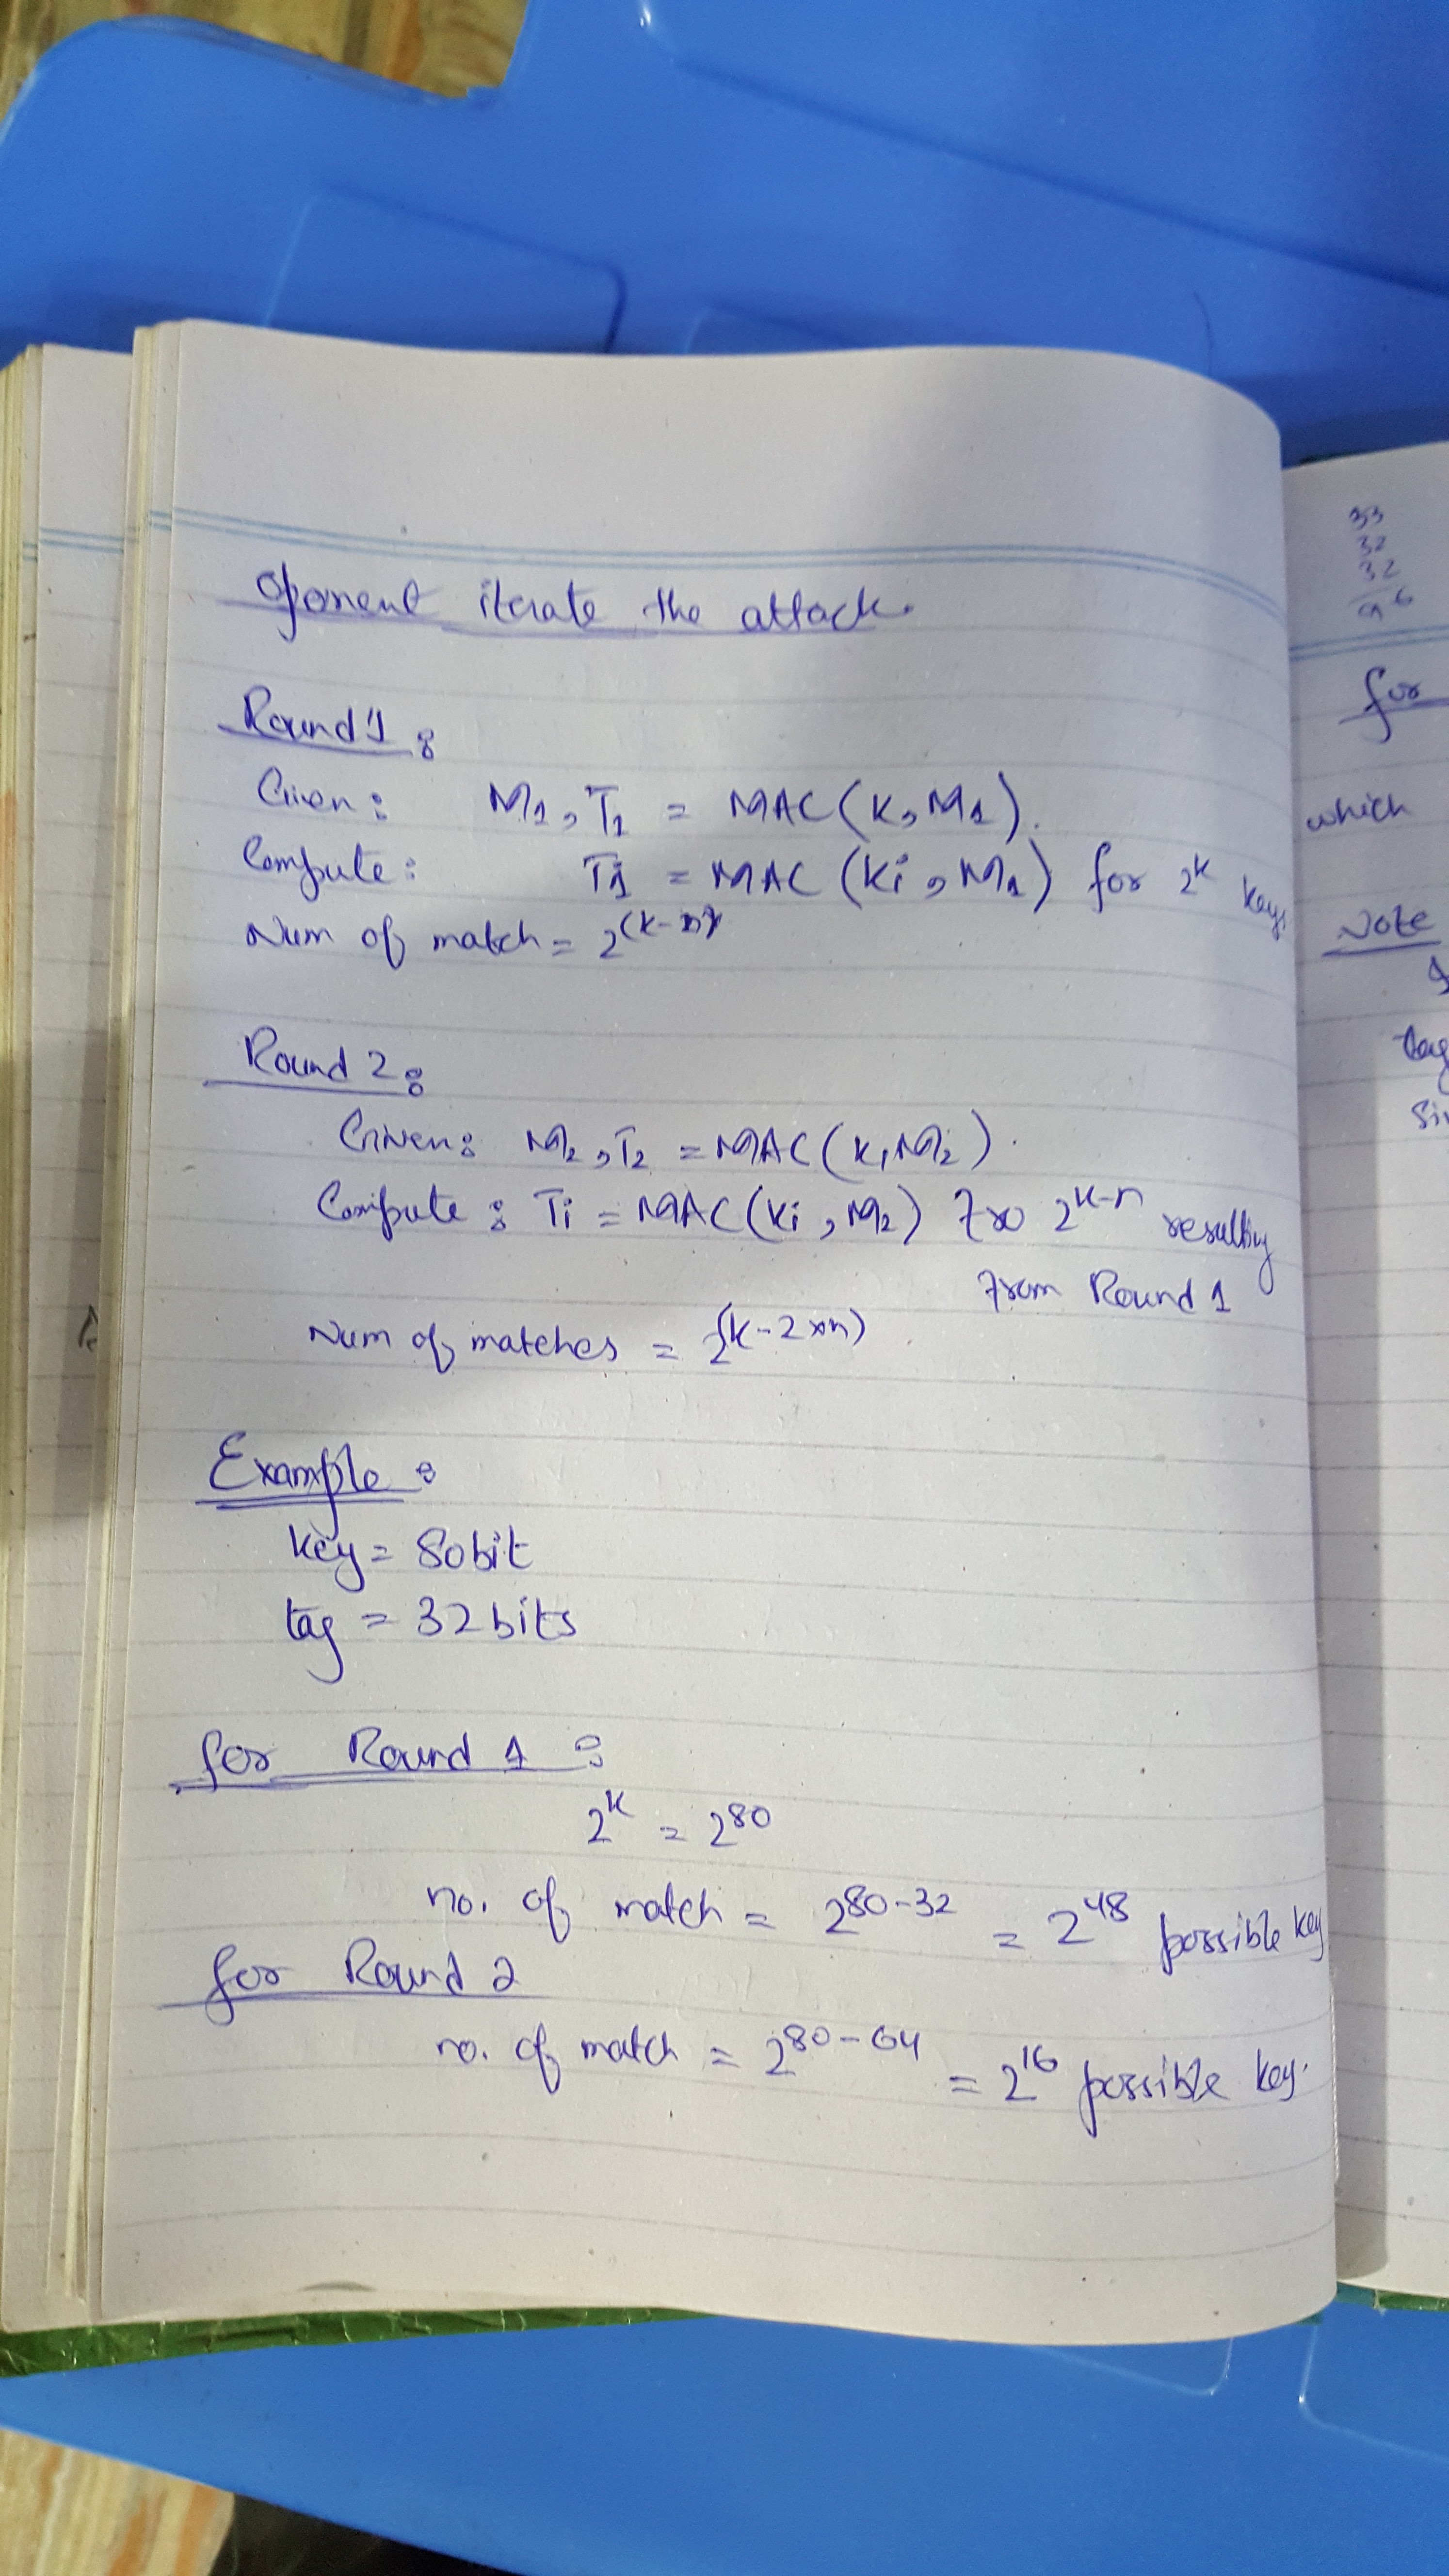 Oponent iterate the attack.
Round 1 :
Given : M1, T1 = MAC(K, M1).
Compute : Ti = MAC (Ki, M1) for 2^k keys
Num of match = 2^(k-n)
Round 2 :
Given : M2, T2 = MAC(K, M2).
Compute : Ti = MAC(Ki, M2) fro 2^k-n resulting
from Round 1
Num of matches = 2^(k-2xn)
Example :
key = 80 bit
tag = 32 bits
for Round 1 :
2^k = 2^80
no. of match = 2^80-32 = 2^48 possible key
for Round 2
no. of match = 2^80-64 = 2^16 possible key.
33
32
32
96
for
which
Note